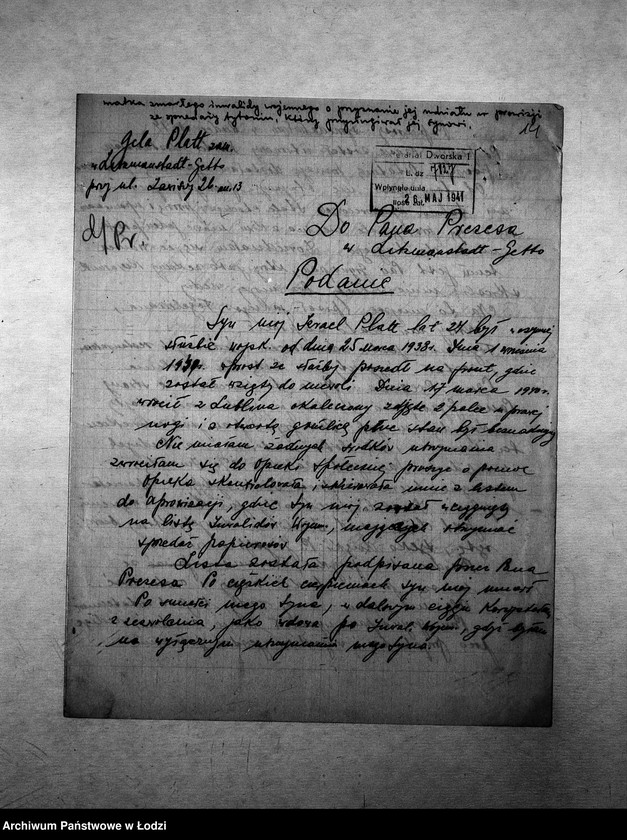 matka zmarłego inwalidy wojennego o przyznanie jej udziału w prowizji
ze sprzedaży tytoniu, który przysługiwał jej synowi.
14
Gela Platt zam.
w Litzmannstadt-Getto
przy ul. Zawiszy 26 m. 13
Sekretariat Dworska 1
L. dz. 7127
Wpłynęło dnia
28 MAJ 1941
Do Pana Prezesa
w Litzmannstadt-Getto
Podanie
Syn mój Israel Platt lat 24 był w czynnej
służbie wojsk. od dnia 25 marca 1938 r. Dnia 1 września
1939 r. wprost ze służby poszedł na front, gdzie
został wzięty do niewoli. Dnia 17 marca 1940 r.
wrócił z Lublina okaleczony zdjęte 2 palce u prawej
nogi i z otwartą gruźlicą płuc stan był beznadziejny
Nie miałam żadnych środków utrzymania
zwróciłam się do Opieki Społecznej prosząc o pomoc
Opieka skontrolowała i skierowała mnie z listem
do Aprowizacji, gdzie syn mój został wciągnięty
na listę Inwalidów Wojen., mających otrzymać
sprzedaż papierosów
Lista została podpisana przez Pana
Prezesa. Po ciężkich cierpieniach syn mój umarł
Po śmierci mego syna, w dalszym ciągu korzystałam
z zezwolenia, jako wdowa po Inwal. Wojen., gdyż byłam
na wyłącznym utrzymaniu mego syna.
Archiwum Państwowe w Łodzi